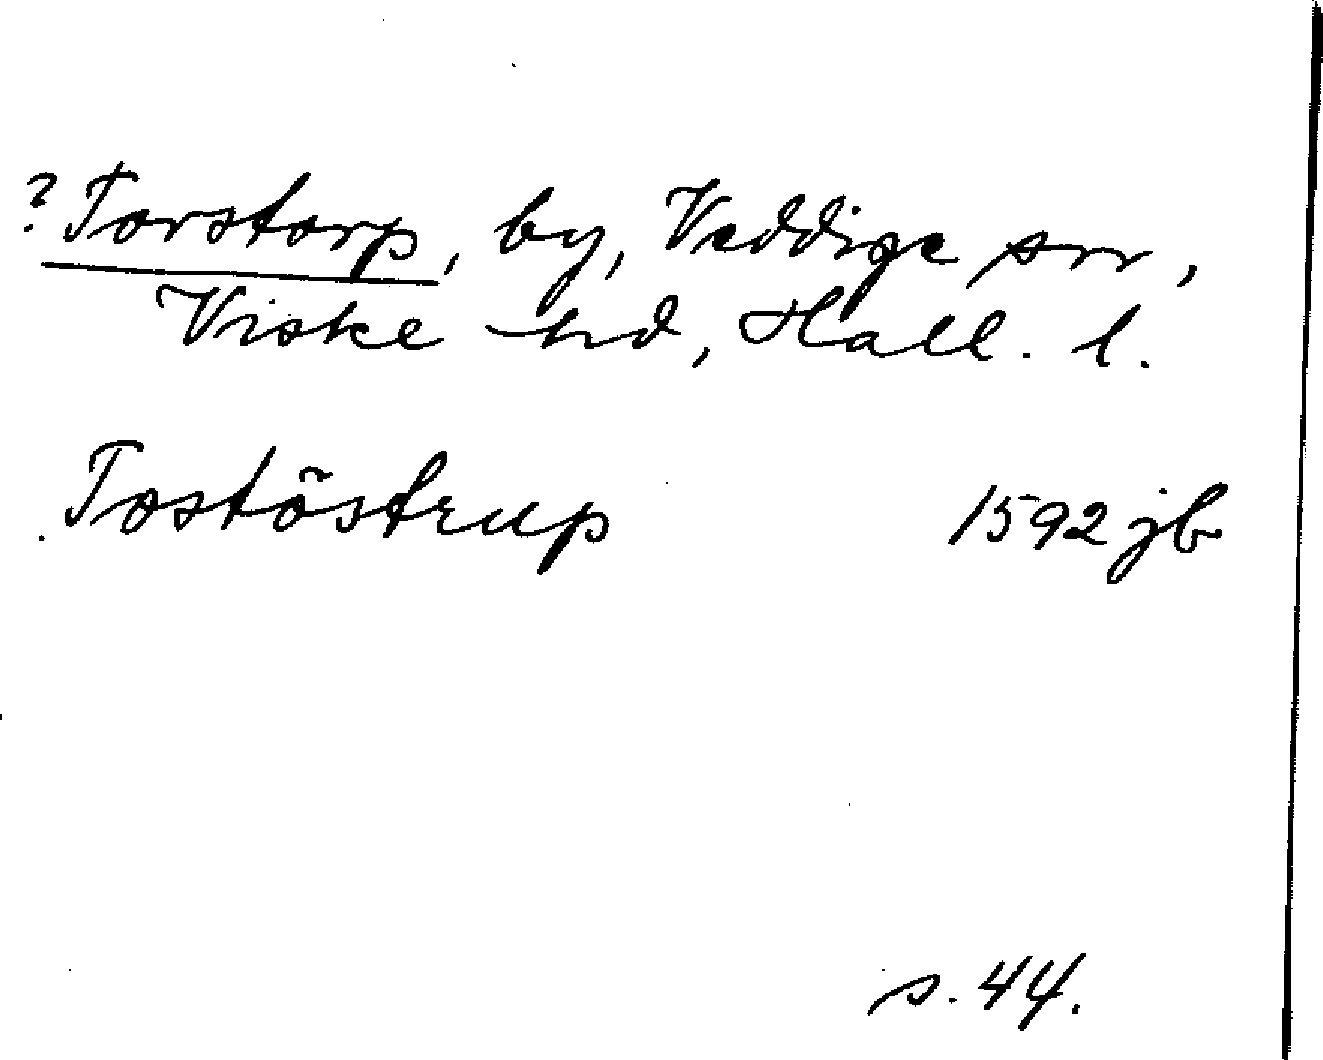 ? Torstorp, by, Veddige sn,
Viske hd, Hall. l.
Tostöstrup 1592 jb
s. 44.